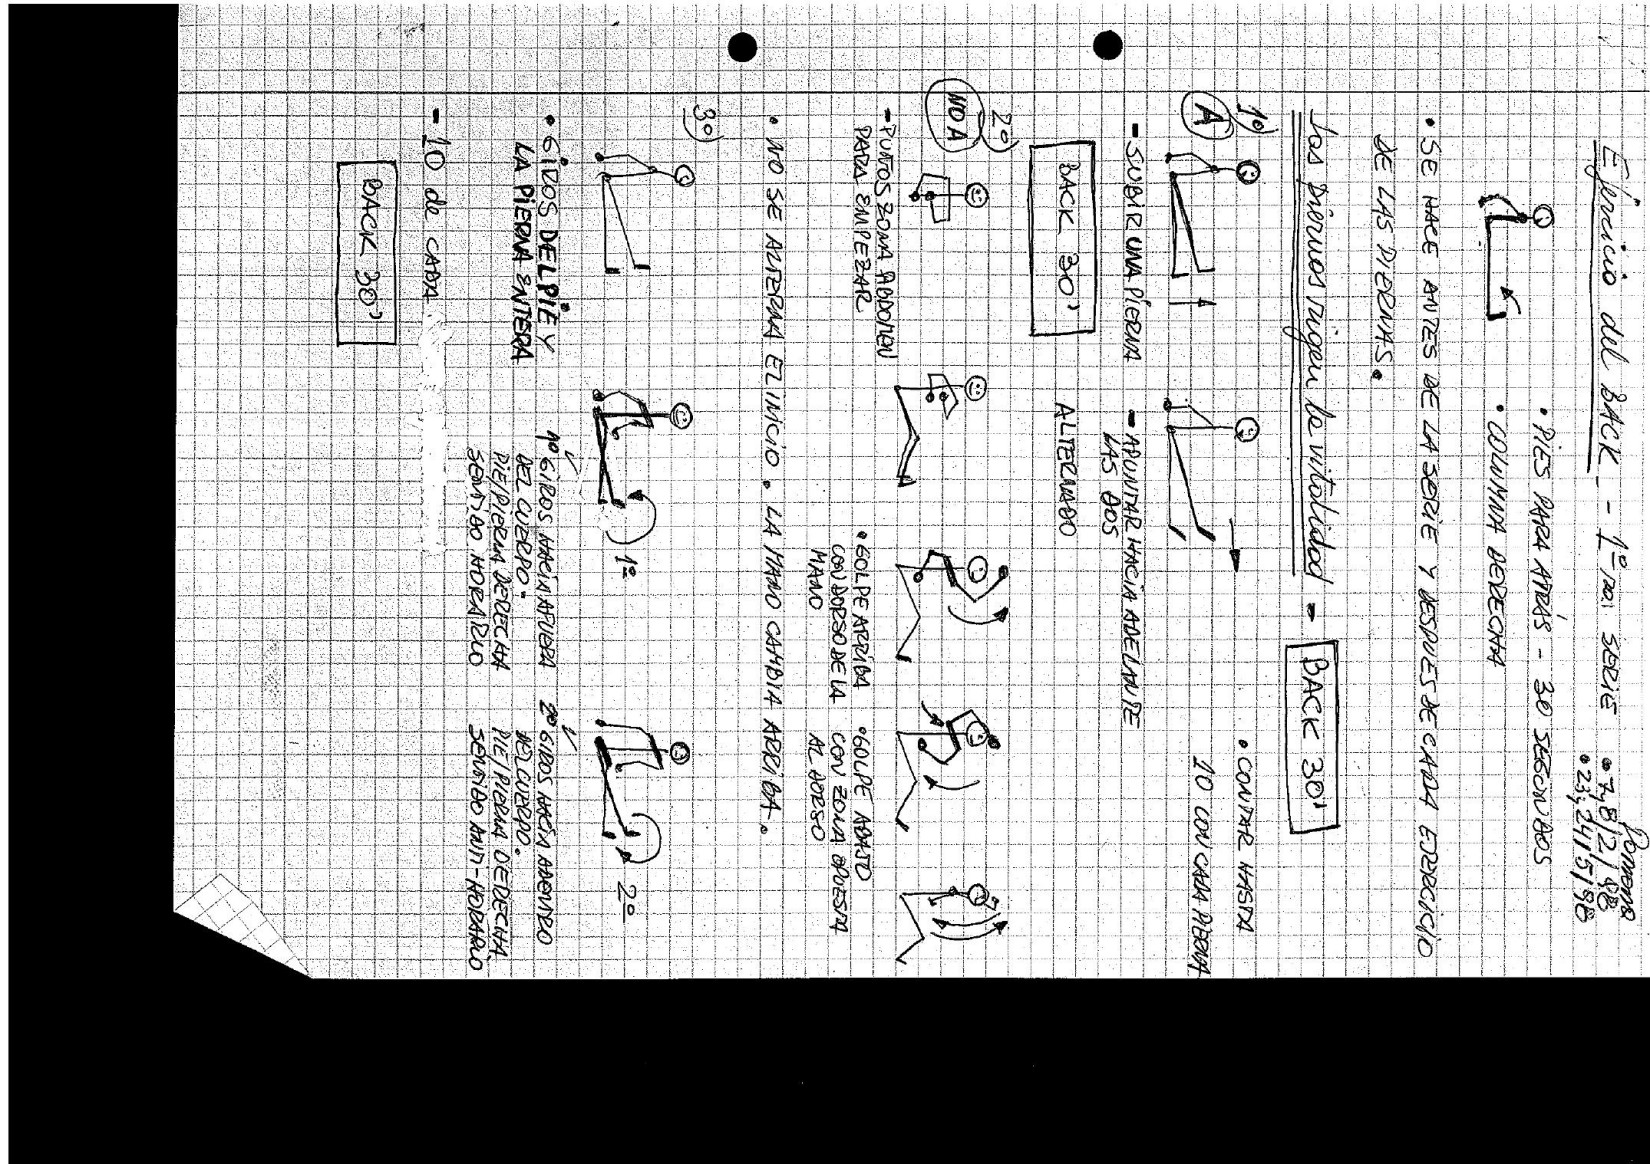 Ejercicio del BACK - 1º mi SERIE
• 7,8/2/98
• 23,24/5/98
• PIES PARA ATRÁS - 30 SEGUNDOS
• COLUMNA DERECHA
• SE HACE ANTES DE LA SERIE Y DESPUES DE CADA EJERCICIO
DE LAS PIERNAS.
Las piernas rigen la vitalidad - BACK 30'
1º)
A
• CONTAR HASTA
10 CON CADA PIERNA
- SUBIR UNA PIERNA
- APUNTAR HACIA ADELANTE
LAS DOS
BACK 30'
ALTERNADO
2º)
NO A
- PUNTOS ZONA ABDOMEN
PARA EMPEZAR
• GOLPE ARRIBA
CON DORSO DE LA
MANO
• GOLPE ABAJO
CON ZONA OPUESTA
AL DORSO
• NO SE ALTERNA EL INICIO. LA MANO CAMBIA ARRIBA.
3º)
1º
2º
• GIROS DEL PIE Y
LA PIERNA ENTERA
1º GIROS HACIA AFUERA
DEL CUERPO.
PIE/PIERNA DERECHA
SENTIDO HORARIO
2º GIROS HACIA ADENTRO
DEL CUERPO.
PIE/PIERNA DERECHA
SENTIDO ANTI-HORARIO
- 10 de CADA
BACK 30'